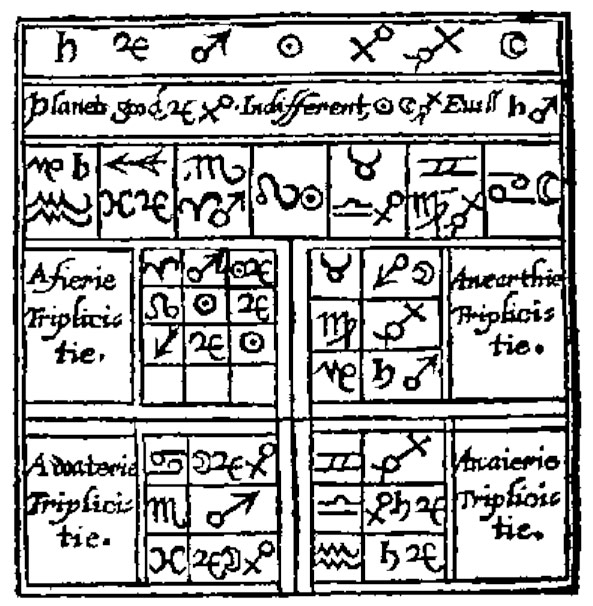 ♄ ♃ ♂ ☉ ♀ ☿ ☾
Planets good, ♃ ♀. Indifferent, ☉ ☾ ☿ Euill ♄ ♂
♑ ♄ ♐ ♏ ♉ ♊
♒ ♓ ♃ ♈ ♂ ♌ ☉ ♎ ♀ ♍ ☿ ♋ ☾
A fierie
Triplicis
tie.
♈ ♂ ☉ ♃
♌ ☉ ♃
♐ ♃ ☉
♉ ☽
♍ ☿
♑ ♄ ♂
An earthie
Triplicis
tie.
A waterie
Triplicis
tie.
♋ ☽ ♃ ♀
♏ ♂
♓ ♃ ☽ ♀
♊ ☿
♎ ♀ ♄ ♃
♒ ♄ ♃
An aierie
Triplicis
tie.